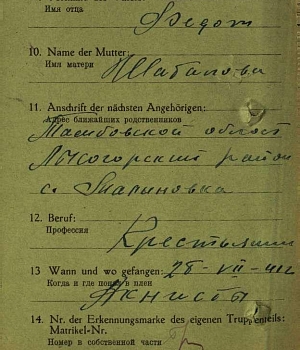 Имя отца
Федот
10. Name der Mutter:
Имя матери
Шабанова
11. Anschrift der nächsten Angehörigen:
Адрес ближайших родственников
область
Лысогорский район
с. Малиновка
12. Beruf:
Профессия
Крестьянин
13 Wann und wo gefangen: 28-VII-41г
Когда и где попал в плен
14. Nr. der Erkennungsmarke des eigenen Truppenteils:
Matrikel-Nr.
Номер в собственной части